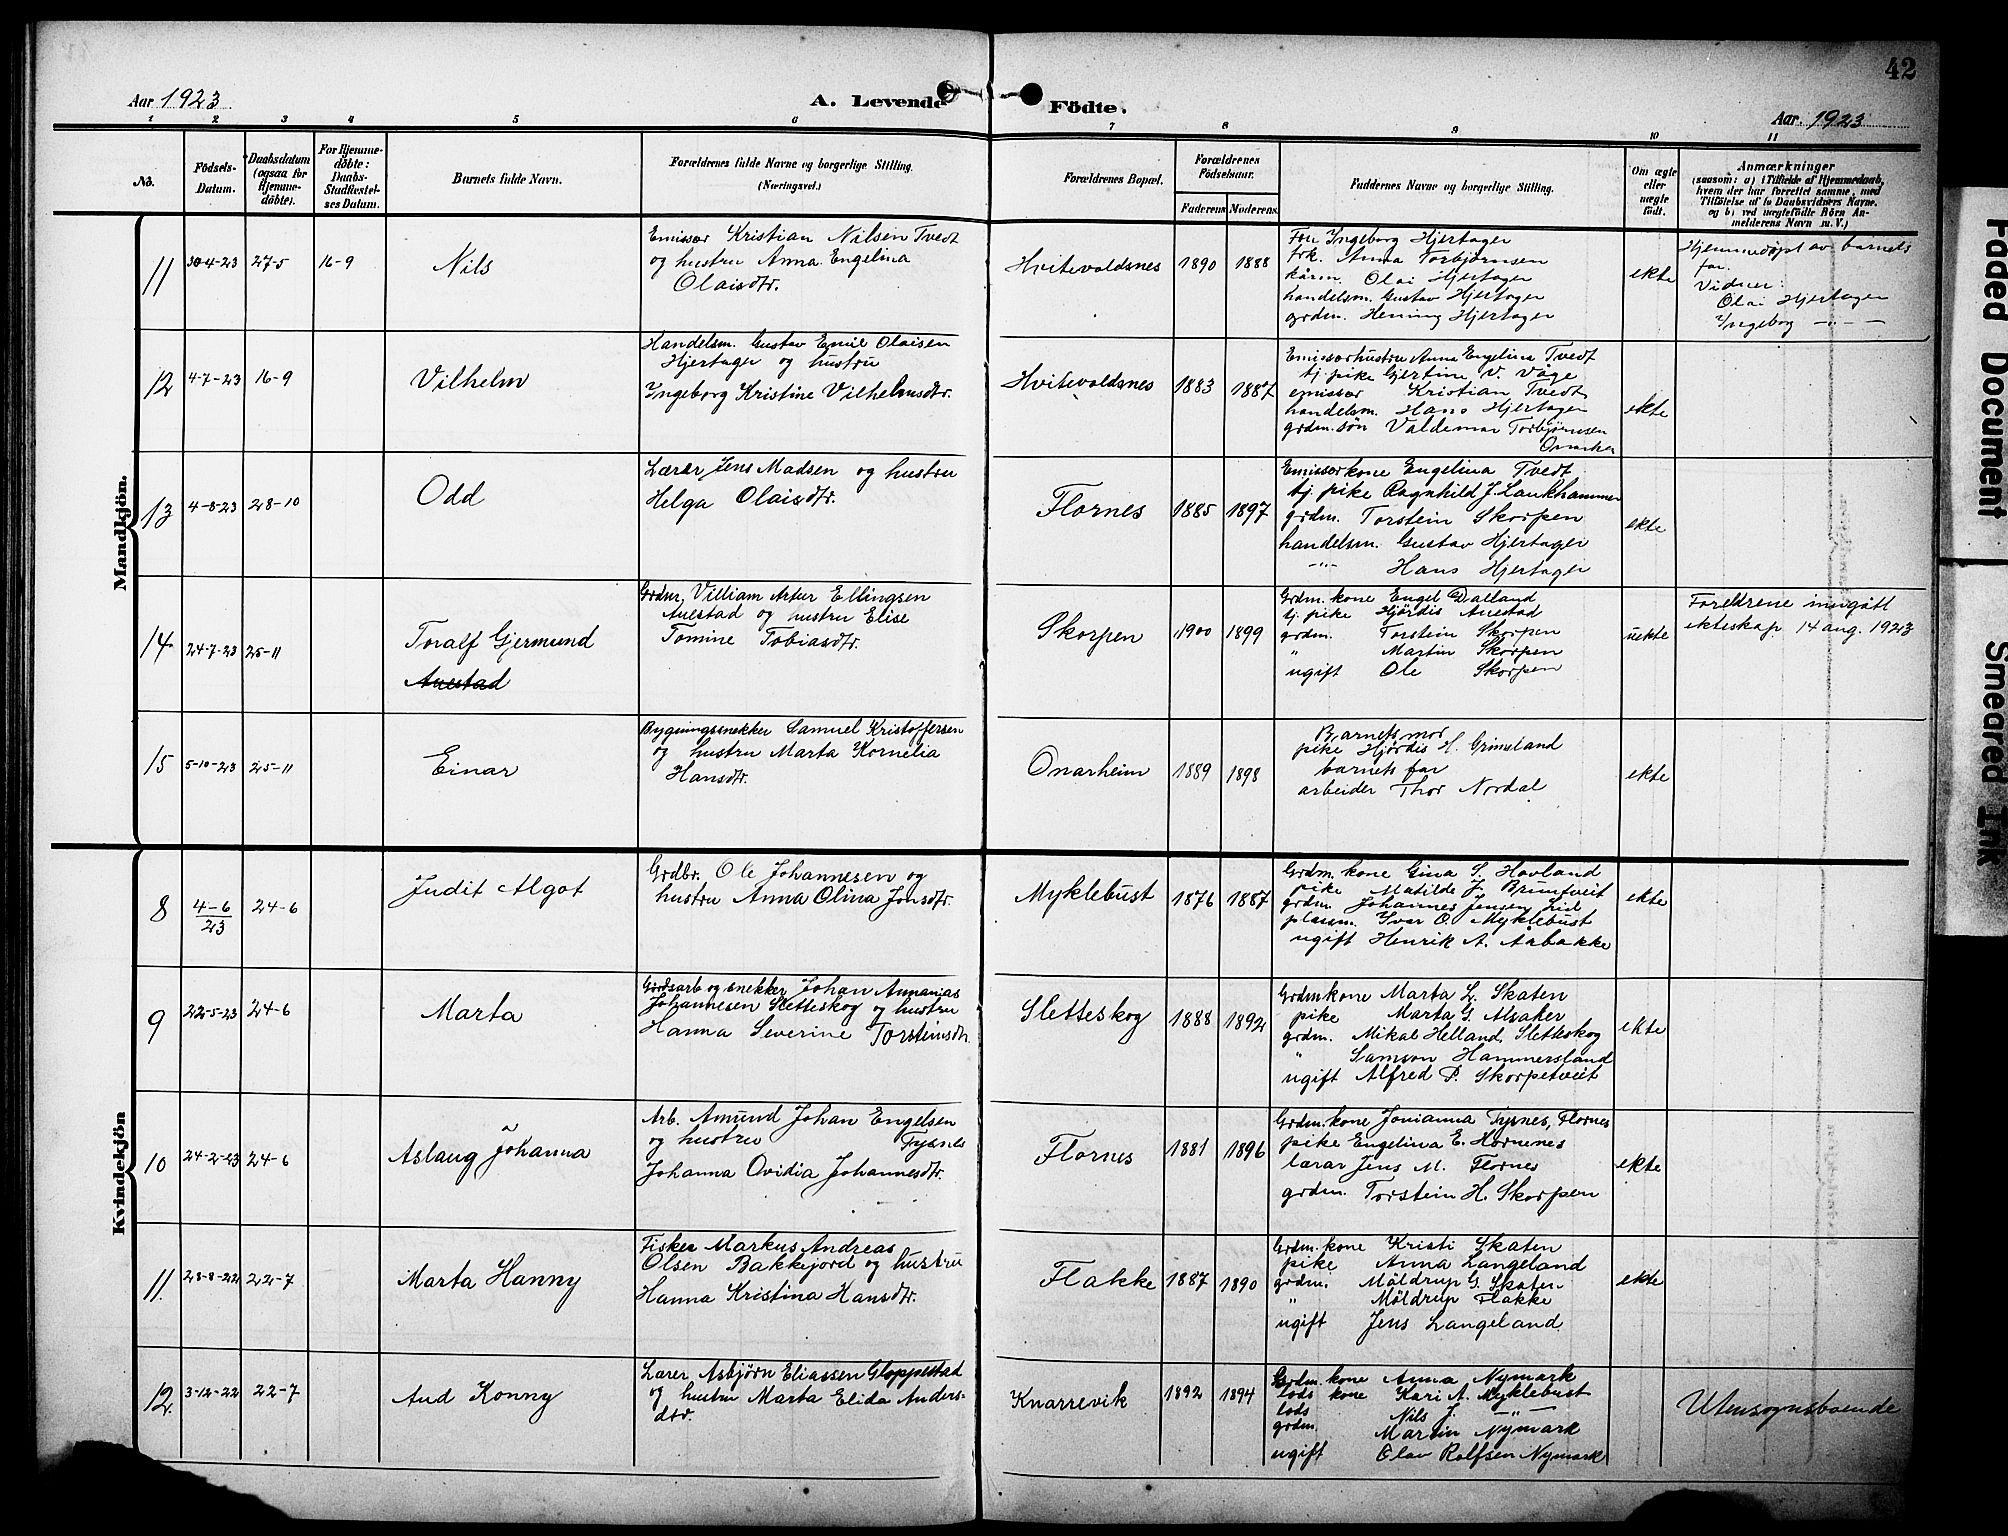 42
Aar 1923.
A. Levende Födte.
Aar 1923
1 2 3 4 5 6 7 8 9 10 11
No.
Födsels-Datum.
Daabsdatum (ogsaa for Hjemme-döbte).
For Hjemme-döbte: Daabs-Stadfæstel-ses Datum.
Barnets fulde Navn.
Forældrenes fulde Navne og borgerlige Stilling.
(Næringsvei.)
Forældrenes Bopæl.
Forældrenes Födselsaar.
Faderens Moderens
Faddernes Navne og borgerlige Stilling.
Om ægte eller uægte födt.
Anmærkninger
(saasom: a) i Tilfælde af Hjemmedaab,
hvem der har forrettet samme, med
Tilföielse af to Daabsvidners Navne.
og b) ved uægtefödte Börn An-
melderens Navn m. V.)
Mandkjön.
11 30-4-23 27-5 16-9 Nils
Emissær Kristian Nilsen Tvedt
og hustru Anna Engelina
Olaisdtr.
Hvitevoldsnes 1890 1888
Fru Ingeborg Hjertager
frk. Anna Torbjørnsen
kårm. Olai Hjertager
handelsm. Gustav Hjertager
grdm. Henning Hjertager
ekte
Hjemmedøpt av barnets
far.
Vidner:
Olai Hjertager
Ingeborg —"—
12 4-7-23 16-9 Vilhelm
Handelsm. Gustav Emil Olaisen
Hjertager og hustru
Ingeborg Kristine Vilhelmsdtr.
Hvitevoldsnes 1883 1887
Emissærhustru Anna Engelina Tvedt
tj. pike Gjertine V. Våge
emissær Kristian Tvedt
handelsm. Hans Hjertager
grdm. søn Valdemar Torbjørnsen
Onarheim
ekte
13 4-8-23 28-10 Odd
Lærer Jens Madsen og hustru
Helga Olaisdtr.
Flornes 1885 1897
Emissærkone Engelina Tvedt
tj. pike Ragnhild J. Laukhammer
grdm. Torstein Skorpen
handelsm. Gustav Hjertager
—"— Hans Hjertager
ekte
14 24-7-23 25-11 Toralf Gjermund
Auestad
Grdm. Villiam Artur Ellingsen
Auestad og hustru Elise
Tomine Tobiasdtr.
Skorpen 1900 1899
Grdm. kone Engel Dalland
tj. pike Hjördis Auestad
grdm. Torstein Skorpen
" Martin Skorpen
ugift Ole Skorpen
uekte
Foreldrene inngått
ekteskap 14 aug. 1923
15 5-10-23 25-11 Einar
Bygningssnekker Samuel Kristoffersen
og hustru Marta Kornelia
Hansdtr.
Onarheim 1889 1898
Barnets mor
pike Hjördis H. Grimsland
barnets far
arbeider Thor Nordal
ekte
Kvindekjön
8 4-6/23 24-6 Judit Algot
Grdbr. Ole Johannesen og
hustru Anna Olina Jonsdtr.
Myklebust 1876 1887
Grdm. kone Gina S. Hovland
pike Matilde J. Brimtveit
grdm. Johannes Jensen Lid
plassm. Ivar O. Myklebust
ugift Henrik A. Årbakke
ekte
9 22-5-23 24-6 Marta
Gårdsarb og snekker Johan Annanias
Johannesen Sletteskog og hustru
Hanna Severine Torsteinsdtr.
Sletteskog 1888 1892
Grdmkone Marta L. Skaten
pike Marta G. Alsaker
grdm. Mikal Helland, Sletteskog
" Samson Hammersland
ugift Alfred P. Skorpetveit
ekte
10 24-2-23 24-6 Aslaug Johanna
Arb. Amund Johan Engelsen
og hustru Tysnes
Johanna Ovidia Johannesdtr.
Flornes 1881 1896
Grdm. kone Jonianna Tysnes, Flornes
pike Engelina E. Hornenes
lærar Jens M. Flornes
grdm. Torstein H. Skorpen
ekte
11. 28-8-22 22-7 Marta Hanny
Fisker Markus Andreas
Olsen Bakkejord og hustru
Hanna Kristina Hansdtr.
Flakke 1887 1890
Grdm. kone Kristi Skaten
pike Anna Langeland
grdm. Möldrup G. Skaten
" Möldrup Flakke
ugift Jens Langeland
ekte
12. 3-12-22 22-7 Aud Konny
Lærer Asbjørn Eliassen Gloppestad
og hustru Marta Elida Anders-
dtr.
Knarrevik 1892 1894
Grdm. kone Anna Nymark
lods kone Kari A. Myklebust
lods Nils J. —"—
grdm Martin Nymark
ugift Olav Rolfsen Nymark
Utensognsboende
Faded Document
Smeared Ink